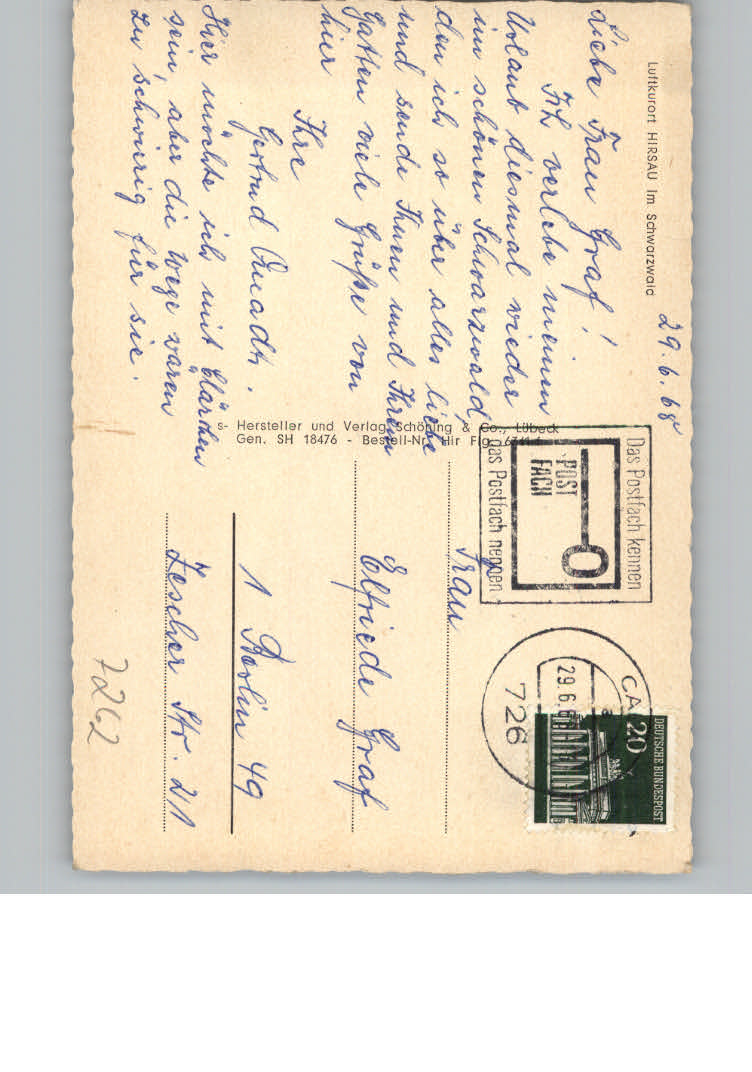 Luftkurort HIRSAU im Schwarzwald
29.6.68
Liebe Frau Graf!
Ich verlebe meinen
Urlaub diesmal wieder
im schönen Schwarzwald,
den ich so über alles liebe
und sende Ihnen und Ihrem
Gatten viele Grüße von
hier
Ihre
Gertrud Quadt.
Hier möchte ich mit Klärchen
sein, aber die Wege wären
zu schwierig für sie.
s- Hersteller und Verlag Schöning & Co., Lübeck
Gen. SH 18476 - Bestell-Nr. Hir Flg.
Das Postfach kennen
POST
FACH
das Postfach nennen
CA
29.6.6
a
726
20
DEUTSCHE BUNDESPOST
Frau
Elfriede Graf
1 Berlin 49
Zescher Str. 21
7262